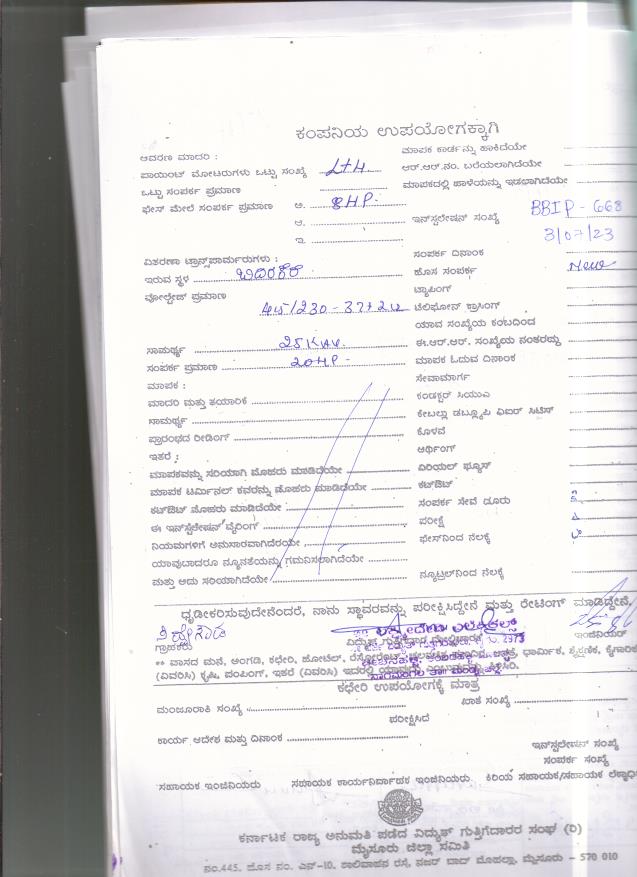 ಕಂಪನಿಯ ಉಪಯೋಗಕ್ಕಾಗಿ
ಆವರಣ ಮಾದರಿ :
ಮಾಪಕ ಕಾರ್ಡನ್ನು ಹಾಕಿದೆಯೇ
ಪಾಯಿಂಟ್ ಮೋಟರುಗಳು ಒಟ್ಟು ಸಂಖ್ಯೆ
ಆರ್.ಆರ್.ನಂ. ಬರೆಯಲಾಗಿದೆಯೇ
ಒಟ್ಟು ಸಂಪರ್ಕ ಪ್ರಮಾಣ
ಮಾಪಕದಲ್ಲಿ ಹಾಳೆಯನ್ನು ಇಡಲಾಗಿದೆಯೇ
ಫೇಸ್ ಮೇಲೆ ಸಂಪರ್ಕ ಪ್ರಮಾಣ ಅ. 8HP.
ಆ.
ಇನ್‌ಸ್ಟಲೇಷನ್ ಸಂಖ್ಯೆ BBIP - 668
ಇ.
3/07/23
ವಿತರಣಾ ಟ್ರಾನ್ಸ್‌ಪಾರ್ಮರುಗಳು :
ಸಂಪರ್ಕ ದಿನಾಂಕ
ಇರುವ ಸ್ಥಳ
ಹೊಸ ಸಂಪರ್ಕ New
ವೋಲ್ಟೇಜ್ ಪ್ರಮಾಣ
ಟ್ಯಾಪಿಂಗ್
ಟೆಲಿಫೋನ್ ಕ್ರಾಸಿಂಗ್
ಯಾವ ಸಂಖ್ಯೆಯ ಕಂಬದಿಂದ
ಸಾಮರ್ಥ್ಯ 25KVA.
ಈ.ಆರ್.ಆರ್. ಸಂಖ್ಯೆಯ ನಂತರದ್ದು
ಸಂಪರ್ಕ ಪ್ರಮಾಣ 20HP -
ಮಾಪಕ ಓದುವ ದಿನಾಂಕ
ಮಾಪಕ :
ಸೇವಾಮಾರ್ಗ
ಮಾದರಿ ಮತ್ತು ತಯಾರಿಕೆ
ಕಂಡಕ್ಟರ್ ಸಿಯುಎ
ಸಾಮರ್ಥ್ಯ
ಕೇಬಲ್ಲು ಡಬ್ಲ್ಯೂಪಿ ಏಐರ್ ಸಿಟಿಸ್
ಪ್ರಾರಂಭದ ರೀಡಿಂಗ್
ಕೊಳವೆ
ಇತರೆ :
ಆರ್ಥಿಂಗ್
ಮಾಪಕವನ್ನು ಸರಿಯಾಗಿ ಮೊಹರು ಮಾಡಿದೆಯೇ
ಏರಿಯಲ್ ಫ್ಯೂಸ್
ಮಾಪಕ ಟರ್ಮಿನಲ್ ಕವರನ್ನು ಮೊಹರು ಮಾಡಿದೆಯೇ
ಕಟ್‌ಔಟ್
ಕಟ್‌ಔಟ್ ಮೊಹರು ಮಾಡಿದೆಯೇ
ಸಂಪರ್ಕ ಸೇವೆ ದೂರು
ಈ ಇನ್‌ಸ್ಟಲೇಷನ್ ವೈರಿಂಗ್
ಪರೀಕ್ಷೆ
ನಿಯಮಗಳಿಗೆ ಅನುಸಾರವಾಗಿದೆಯೇ
ಫೇಸ್‌ನಿಂದ ನೆಲಕ್ಕೆ
ಯಾವುದಾದರೂ ನ್ಯೂನತೆಯನ್ನು ಗಮನಿಸಲಾಗಿದೆಯೇ
ಮತ್ತು ಅದು ಸರಿಯಾಗಿದೆಯೇ
ನ್ಯೂಟ್ರಲ್‌ನಿಂದ ನೆಲಕ್ಕೆ
ಧೃಡೀಕರಿಸುವುದೇನೆಂದರೆ, ನಾನು ಸ್ಥಾವರವನ್ನು ಪರೀಕ್ಷಿಸಿದ್ದೇನೆ ಮತ್ತು ರೇಟಿಂಗ್ ಮಾಡಿದ್ದೇನೆ.
ಗ್ರಾಹಕರು
ಇಂಜಿನಿಯರ್
** ವಾಸದ ಮನೆ, ಅಂಗಡಿ, ಕಛೇರಿ, ಹೋಟೆಲ್, ರೆಸ್ಟೋರೆಂಟ್, ಧಾರ್ಮಿಕ, ಶೈಕ್ಷಣಿಕ, ಕೈಗಾರಿಕೆ
(ವಿವರಿಸಿ) ಕೃಷಿ, ಪಂಪಿಂಗ್, ಇತರೆ (ವಿವರಿಸಿ) ಇದರಲ್ಲಿ
ಕಛೇರಿ ಉಪಯೋಗಕ್ಕೆ ಮಾತ್ರ
ಮಂಜೂರಾತಿ ಸಂಖ್ಯೆ ಖಾತ ಸಂಖ್ಯೆ
ಪರೀಕ್ಷಿಸಿದೆ
ಕಾರ್ಯ ಆದೇಶ ಮತ್ತು ದಿನಾಂಕ
ಇನ್‌ಸ್ಟಲೇಷನ್ ಸಂಖ್ಯೆ
ಸಂಪರ್ಕ ಸಂಖ್ಯೆ
ಸಹಾಯಕ ಇಂಜಿನಿಯರು ಸಹಾಯಕ ಕಾರ್ಯನಿರ್ವಾಹಕ ಇಂಜಿನಿಯರು ಕಿರಿಯ ಸಹಾಯಕ/ಸಹಾಯಕ
ಕರ್ನಾಟಕ ರಾಜ್ಯ ಅನುಮತಿ ಪಡೆದ ವಿದ್ಯುತ್ ಗುತ್ತಿಗೆದಾರರ ಸಂಘ (ರಿ)
ಮೈಸೂರು ಜಿಲ್ಲಾ ಸಮಿತಿ
ನಂ.445, ಹೊಸ ನಂ. ಎನ್-10, ಶಾಲಿವಾಹನ ರಸ್ತೆ, ನಜರ್ ಬಾದ್ ಮೊಹಲ್ಲಾ, ಮೈಸೂರು - 570 010